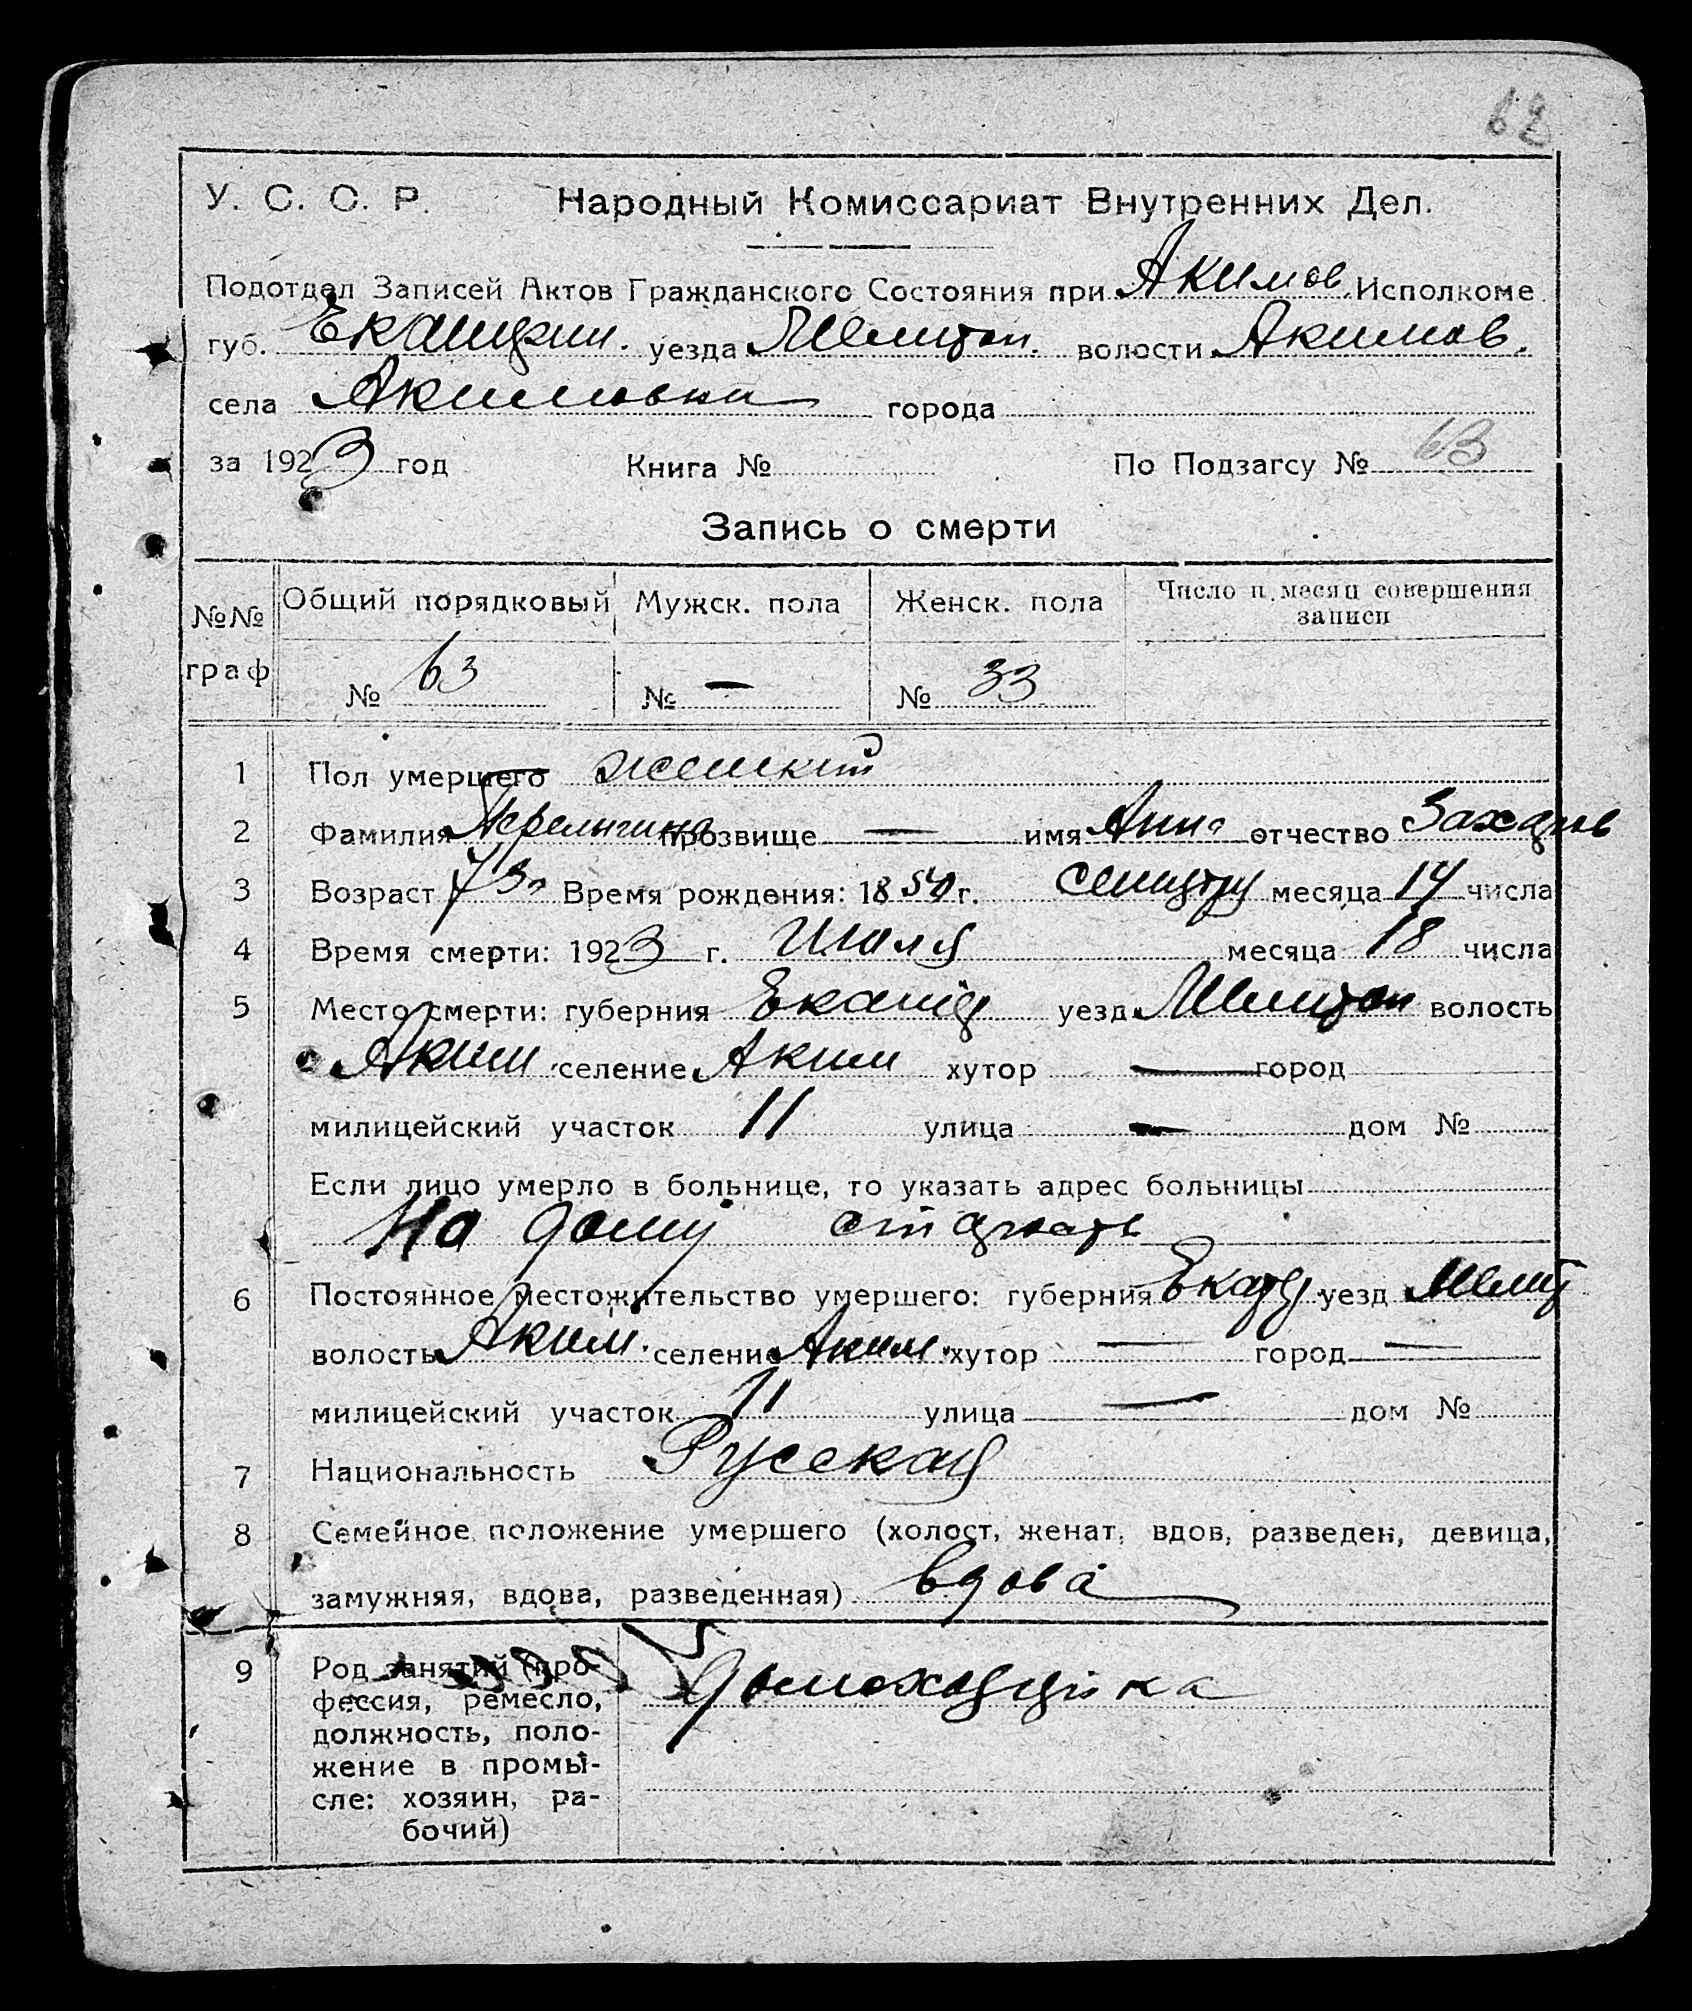 62
У. С. С. Р. Народный Комиссариат Внутренних Дел.
Подотдел Записей Актов Гражданского Состояния при Акимов. Исполкоме
губ. уезда Мелитоп. волости Акимов.
села Акимовки города
за 1923 год Книга № По Подзагсу № 63
Запись о смерти
№№ граф Общий порядковый Мужск. пола Женск. пола Число и месяц совершения записи
№ 63 № — № 33
1 Пол умершего женский
2 Фамилия прозвище — имя Анна отчество Захаров
3 Возраст 73 Время рождения: 1850 г. месяца 14 числа
4 Время смерти: 1923 г. Июля месяца 18 числа
5 Место смерти: губерния уезд Мелитоп волость
Аким. селение Аким хутор — город
милицейский участок 11 улица — дом №
Если лицо умерло в больнице, то указать адрес больницы
На дому старость
6 Постоянное местожительство умершего: губерния Екатер. уезд Мелит
волость Аким. селение Аким. хутор — город —
милицейский участок 11 улица — дом №
7 Национальность Русская
8 Семейное положение умершего (холост, женат, вдов, разведен, девица,
замужняя, вдова, разведенная) вдова
9 Род занятий (про-
фессия, ремесло,
должность, поло-
жение в промы-
сле: хозяин, ра-
бочий)
домохозяйка